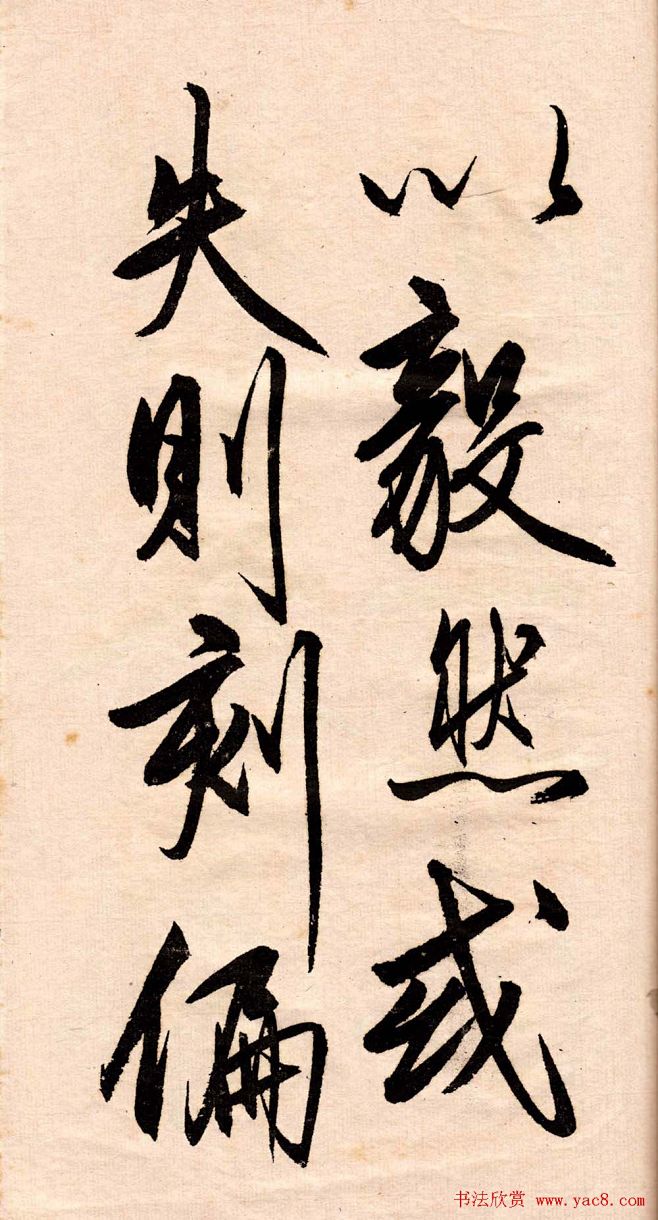 以毅然或
失則刻偏
书法欣赏 www.yac8.com